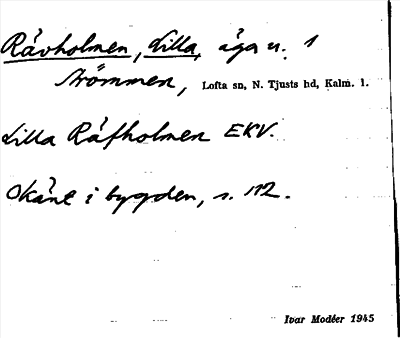 Råvholmen, Lilla, äga u. 1
Strömmen, Lofta sn, N. Tjusts hd, Kalm. l.
Lilla Råfholmen EKV.
Okänt i bygden, s. 112.
Ivar Modéer 1945